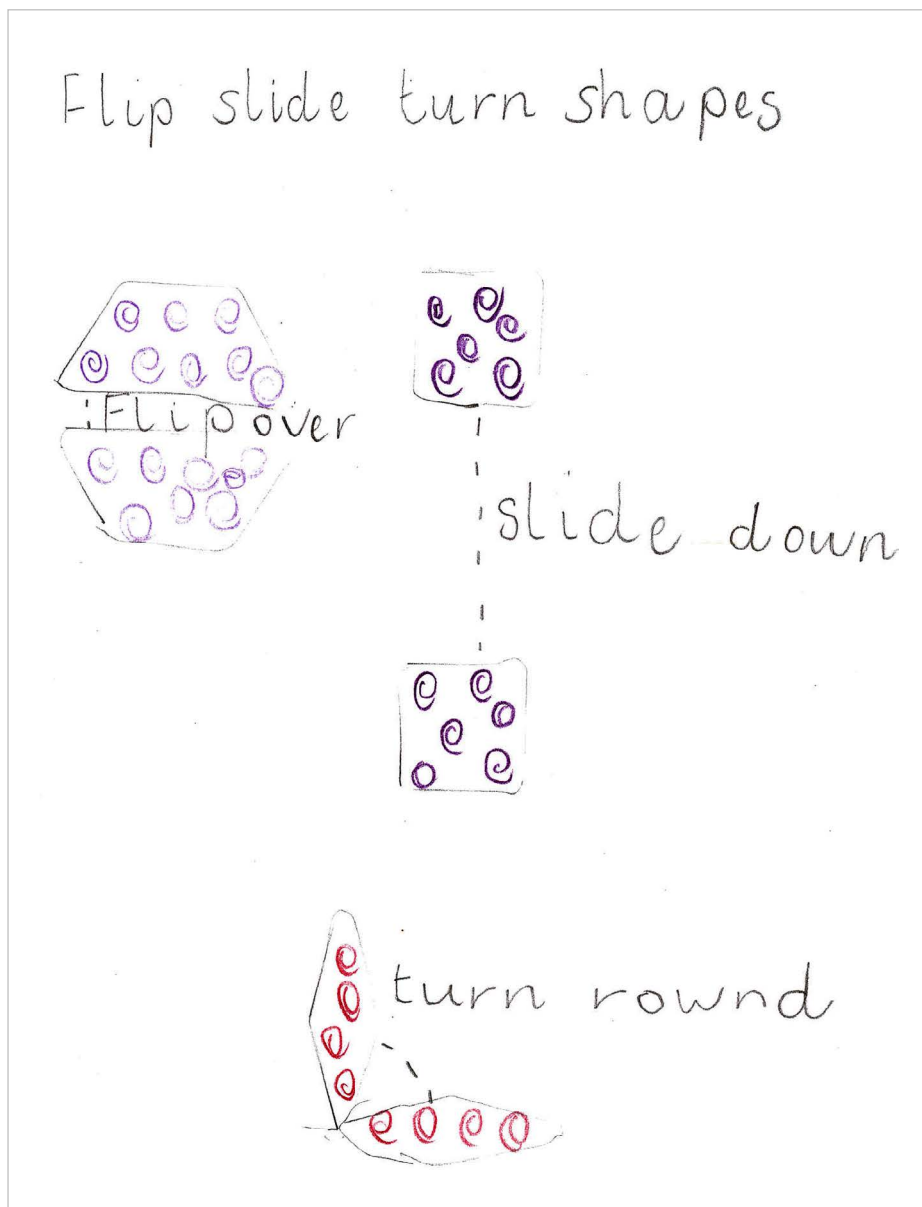 Flip slide turn shapes
Flip over
slide down
turn rownd